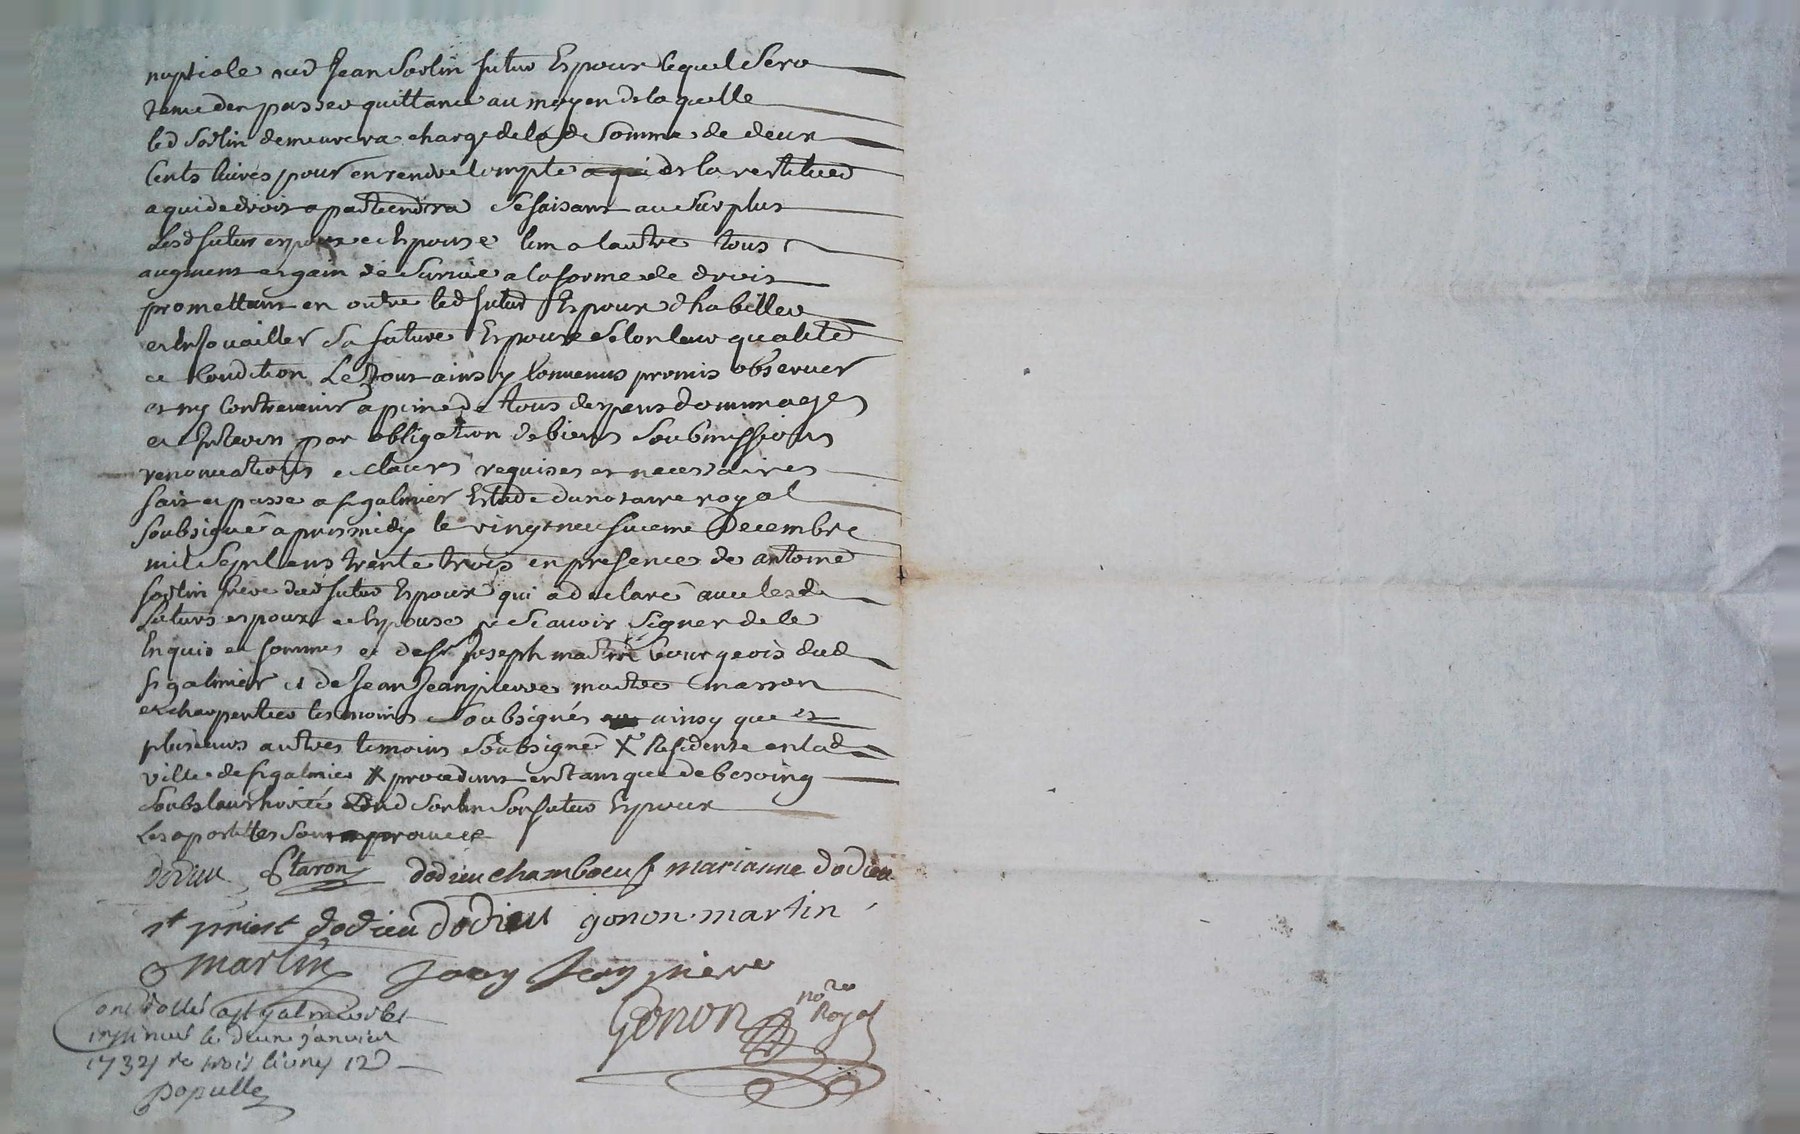 nuptiale aud Jean Sorlin futur Espoux lequel sera
tenu den passer quittance au moyen de laquelle
led Sorlin demeurera chargé de lad somme de deux
cents livres pour en rendre compte et la restitued
a qui de droit apartiendra se faisant au surplus
Lesd futur espoux et Espouse lun a lautre tous
augment et gain de survie a la forme de droit
promettant en outre led futur Espoux d'habiller
et enjouailler sa future Espouse selon leur qualité
et Condition Le tout ainsy Convenus promis observer
et ny Contrevenir a peine de tous despens dommages
et Interets par obligation de biens Soubmissions
renonciations et clauses requises et necessaires
fait et passé a st galmier Estude du notaire royal
soubsigné apres midy le vingt neufvieme Decembre
mil Sept Cens trente trois en presence de antoine
Sorlin frere dud futur Espoux qui a declaré avec lesd
futurs espoux et Espouse ne scavoir signer de ce
Enquis et sommés et de sr Joseph bourgeois dud
st galmier et de Jean Jeanpierre maitre masson
et charpentier tesmoins Soubsignés ainsy que
plusieurs autres temoins Soubsigné X Residente en lad
ville de st galmier X procedant en tant que de besoing
soubs lauthorité dud Sorlin son futur Espoux
Les apostilles sont aprouvee
dodieu Staron dodieu chamboeuf marianne dodieu
st priest dodieu dodieu gonon martin
martin Jean pierre
Gonon nore Royal
controllé a st galmier et
insinué le deux janvier
1734 rc trois livres 12
populle